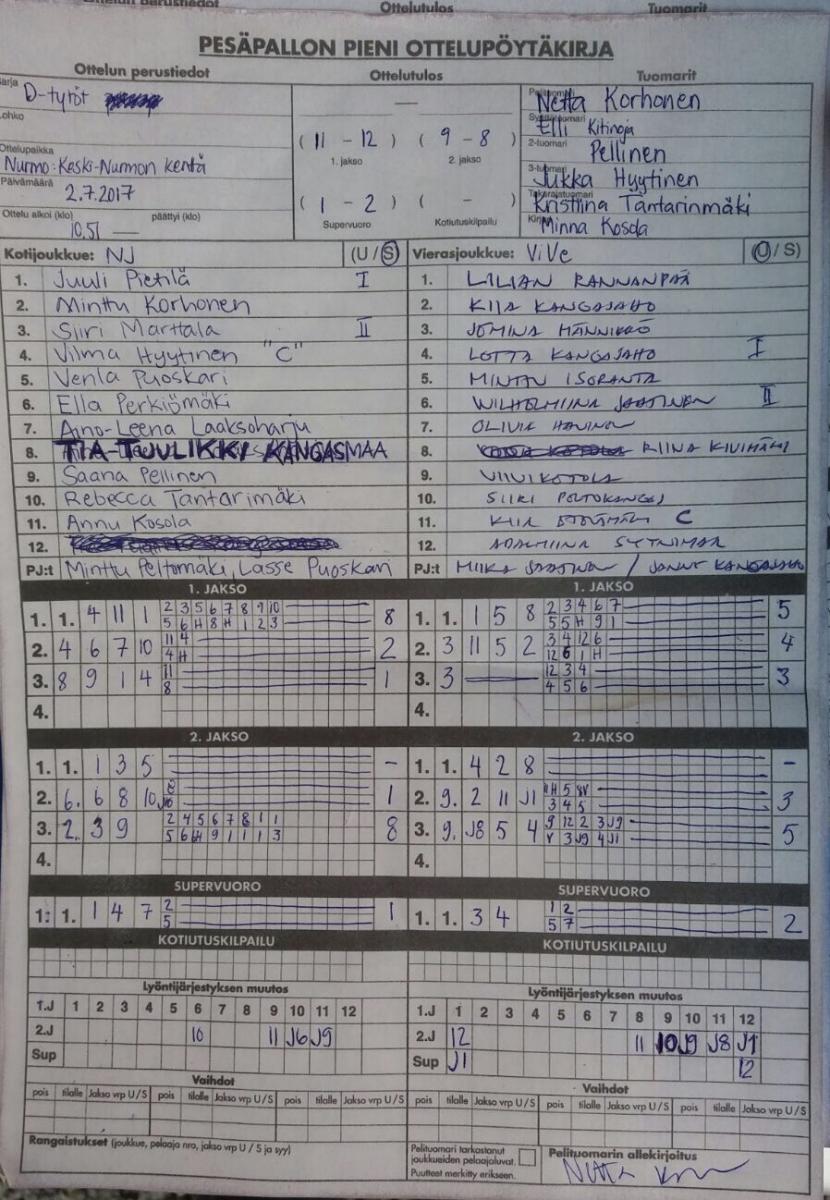 Ottelun perustiedot Ottelutulos Tuomarit
PESÄPALLON PIENI OTTELUPÖYTÄKIRJA
Ottelun perustiedot Ottelutulos Tuomarit
D-tytöt
Lohko
Ottelupaikka
Nurmo: Keski-Nurmon kenttä
Päivämäärä
2.7.2017
Ottelu alkoi (klo) päättyi (klo)
10.51 —
—
( 11 - 12 ) ( 9 - 8 )
1. jakso 2. jakso
( 1 - 2 ) ( - )
Supervuoro Kotiutuskilpailu
Netta Korhonen
Elli Kitinoja
2-tuomari
Pellinen
3-tuomari
Jukka Hyytinen
Kristiina Tantarinmäki
Minna Kosola
Kotijoukkue: NJ (U / S)
1. Juuli Pietilä I
2. Minttu Korhonen
3. Siiri Marttala II
4. Vilma Hyytinen "C"
5. Venla Puoskari
6. Ella Perkiömäki
7. Aino-Leena Laaksoharju
8. TIA-TUULIKKI KANGASMAA
9. Saana Pellinen
10. Rebecca Tantarimäki
11. Annu Kosola
12.
PJ:t Minttu Peltomäki, Lasse Puoskari
Vierasjoukkue: ViVe (U / S)
1. LILIAN RANNANPÄÄ
2. KIIA KANGASAHO
3. JEMINA HÄNNIKKÖ
4. LOTTA KANGASAHO I
5. MINTTU ISORANTA
6. WILHELMIINA SAATINEN II
7. OLIVIA
8. RIINA KIVIMÄKI
9. VIIVI KOTOLA
10. SIIRI
11. KIIA C
12. ADALMIINA
PJ:t MIIKA / JANNE KANGASAHO
1. JAKSO
1. 1. 4 11 1 2 3 5 6 7 8 9 10 8
5 6 H 8 H 1 2 3
2. 4 6 7 10 11 4 2
4 H
3. 8 9 1 4 11 1
8
4.
1. JAKSO
1. 1. 1 5 8 2 3 4 6 7 5
5 5 H 9 1
2. 3 11 5 2 3 4 12 6 4
12 6 1 H
3. 3 — 12 3 4 3
4 5 6
4.
2. JAKSO
1. 1. 1 3 5 -
2. 6. 6 8 10 8 1
J10
3. 2. 3 9 2 4 5 6 7 8 1 1 8
5 6 H 9 1 1 1 3
4.
2. JAKSO
1. 1. 4 2 8 -
2. 9. 2 11 J1 11H 5 8V 3
3 4 5
3. 9. J8 5 4 9 12 2 3 J9 5
V 3 J9 4 J1
4.
SUPERVUORO
1: 1. 1 4 7 2 1
5
SUPERVUORO
1. 1. 3 4 1 2 2
5 7
KOTIUTUSKILPAILU
KOTIUTUSKILPAILU
Lyöntijärjestyksen muutos
1.J 1 2 3 4 5 6 7 8 9 10 11 12
2.J 10 11 J6 J9
Sup
Lyöntijärjestyksen muutos
1.J 1 2 3 4 5 6 7 8 9 10 11 12
2.J 12 11 10 J9 J8 J1
Sup J1 12
Vaihdot
pois tilalle Jakso vrp U / S pois tilalle Jakso vrp U / S pois tilalle Jakso vrp U / S
Vaihdot
pois tilalle Jakso vrp U / S pois tilalle Jakso vrp U / S pois tilalle Jakso vrp U / S
Rangaistukset (joukkue, pelaaja nro, jakso vrp U / S ja syy)
Pelituomari tarkastanut
joukkueiden pelaajaluvat.
Puutteet merkitty erikseen.
Pelituomarin allekirjoitus